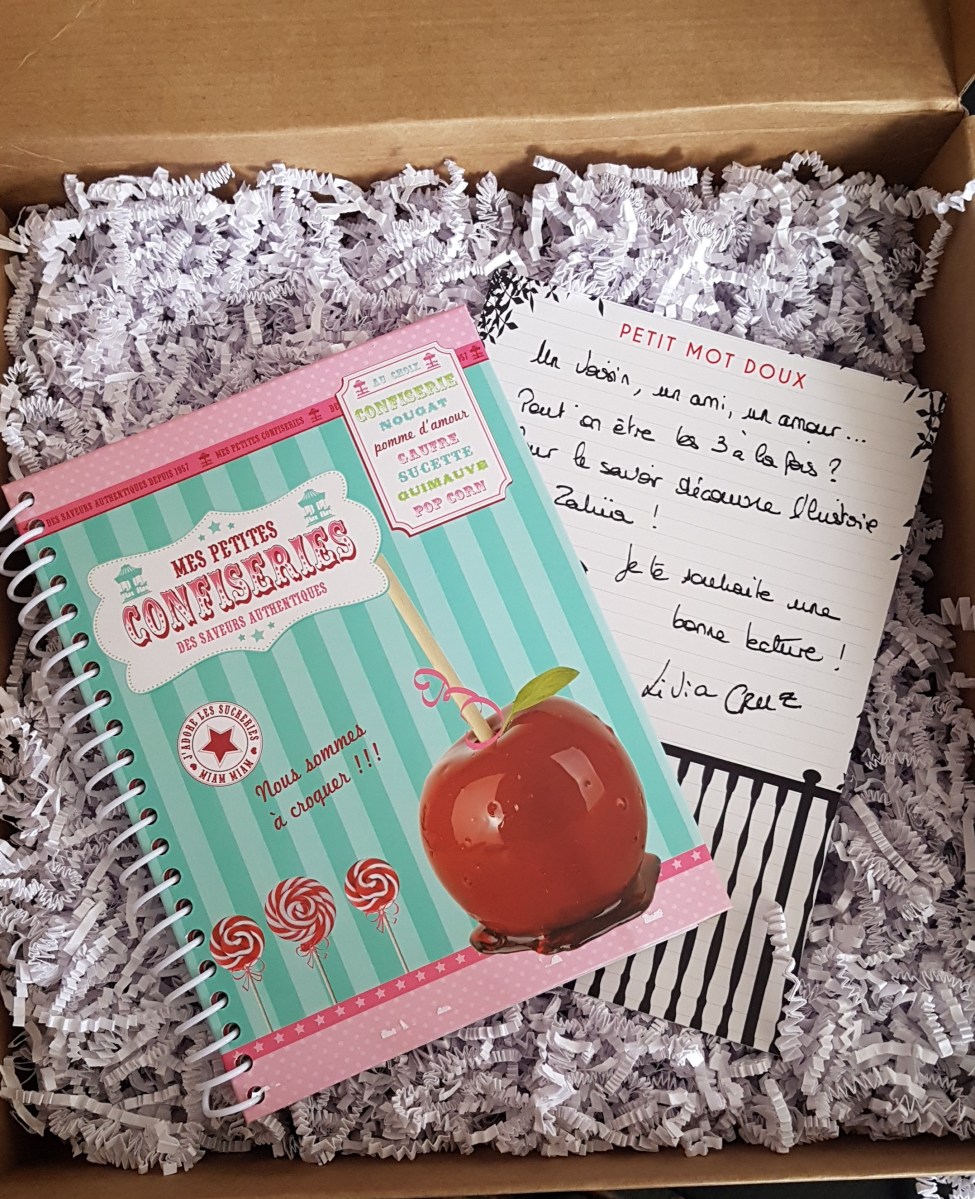 DES SAVEURS AUTHENTIQUES DEPUIS 1957 MES PETITES CONFISERIES
AU CHOIX
CONFISERIE
NOUGAT
pomme d'amour
GAUFRE
SUCETTE
GUIMAUVE
POP CORN
MES PETITES
CONFISERIES
DES SAVEURS AUTHENTIQUES
J'ADORE LES SUCRERIES
MIAM MIAM
Nous sommes
à croquer !!!
PETIT MOT DOUX
Un voisin, un ami, un amour...
Peut on être les 3 à la fois ?
le savoir découvre l'histoire
Zahiia !
Je te souhaite une
bonne lecture !
Livia CRUZ